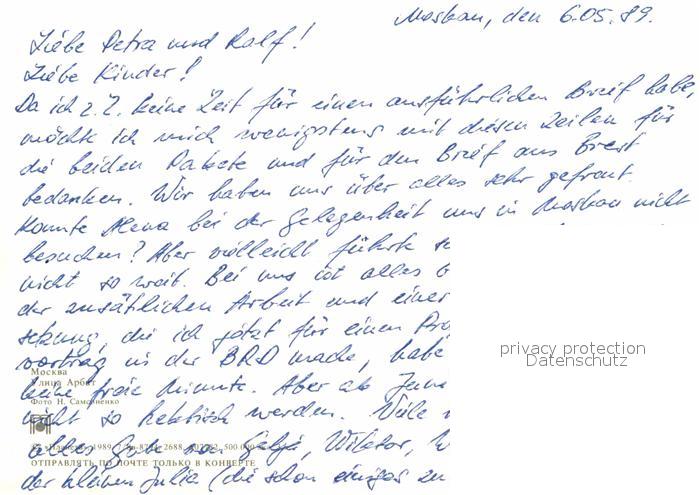 Moskau, den 6.05.89.
Liebe Petra und Ralf!
Liebe Kinder!
Da ich z.Z. keine Zeit für einen ausführlichen Brief habe,
möchte ich mich wenigstens mit diesen Zeilen für
die beiden Pakete und für den Brief aus Brest
bedanken. Wir haben uns über alles sehr gefreut.
Konnte bei der Gelegenheit uns in Moskau nicht
besuchen? Aber vielleicht führte
nicht so weit. Bei uns ist alles
der zusätzlichen Arbeit und einer
setzung, die ich jetzt für einen
vortrag in der BRD mache, habe
keine freie Minute. Aber ab
nicht so hektisch werden. Viele
alles Gute von Wiktor,
der kleinen Julia (die schon einiges
Москва
Улица Арбат
Фото Н. Самойленко
1989
ОТПРАВЛЯТЬ ПО ПОЧТЕ ТОЛЬКО В КОНВЕРТЕ
privacy protection
Datenschutz